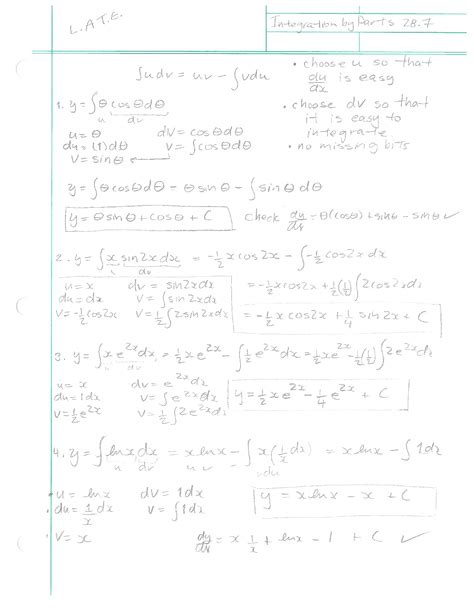 L.A.T.E.
Integration by Parts 28.7
∫udv = uv - ∫vdu
• choose u so that
du/dx is easy
• choose dv so that
it is easy to
integrate
• no missing bits
1. y = ∫θ cosθ dθ
u dv
u = θ dV = cosθdθ
du = (1)dθ V = ∫cosθdθ
V = sinθ
y = ∫θcosθdθ = θ sinθ - ∫sinθ dθ
y = θ sinθ + cosθ + C check dy/dx = θ(cosθ) + sinθ - sinθ ✓
2. y = ∫x sin2x dx = -1/2 x cos2x - ∫-1/2 cos2x dx
dv
u = x dv = sin2xdx = -1/2 x cos2x + 1/2(1/2)∫2cos2xdx
du = dx V = ∫sin2xdx
V = -1/2 cos2x V = 1/2∫2sin2xdx = -1/2 x cos2x + 1/4 sin2x + C
3. y = ∫x e^2x dx = 1/2 x e^2x - ∫1/2 e^2x dx = 1/2 x e^2x - 1/2(1/2)∫2e^2x dx
u dv
u = x dv = e^2x dx
du = 1dx V = ∫e^2x dx y = 1/2 x e^2x - 1/4 e^2x + C
V = 1/2 e^2x V = 1/2∫2e^2x dx
4. y = ∫lnx dx = x lnx - ∫x(1/x dx) = x lnx - ∫1dx
u dv u v du
• u = lnx dV = 1dx y = x lnx - x + C
• du = 1/x dx V = ∫1dx
• V = x dy/dx = x 1/x + lnx - 1 + C ✓